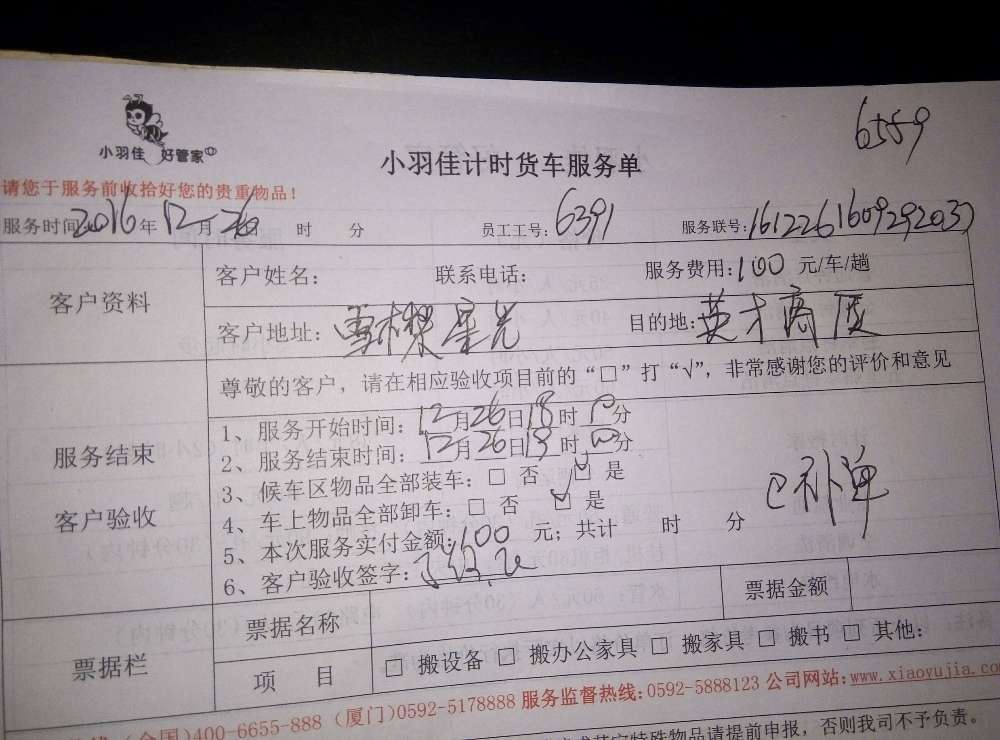 6559
小羽佳 好管家
小羽佳计时货车服务单
请您于服务前收拾好您的贵重物品！
服务时间 2016年 12月 26日 时 分 员工工号: 6391 服务联号: 161226160929203
客户资料
客户姓名： 联系电话： 服务费用: 100 元/车/趟
客户地址： 雪樑星光 目的地: 英才商厦
尊敬的客户，请在相应验收项目前的“□”打“√”，非常感谢您的评价和意见
服务结束
客户验收
1、服务开始时间: 12月26日18时 分
2、服务结束时间: 12月26日19时 分
3、候车区物品全部装车: □ 否 ☑ 是
4、车上物品全部卸车: □ 否 ☑ 是
5、本次服务实付金额: 100 元；共计 时 分
补单
6、客户验收签字:
票据栏
票据名称 票据金额
项 目 □ 搬设备 □ 搬办公家具 □ 搬家具 □ 搬书 □ 其他:
全国)400-6655-888 (厦门)0592-5178888 服务监督热线: 0592-5888123 公司网站: www.xiaoyujia.com
特殊物品请提前申报，否则我司不予负责。